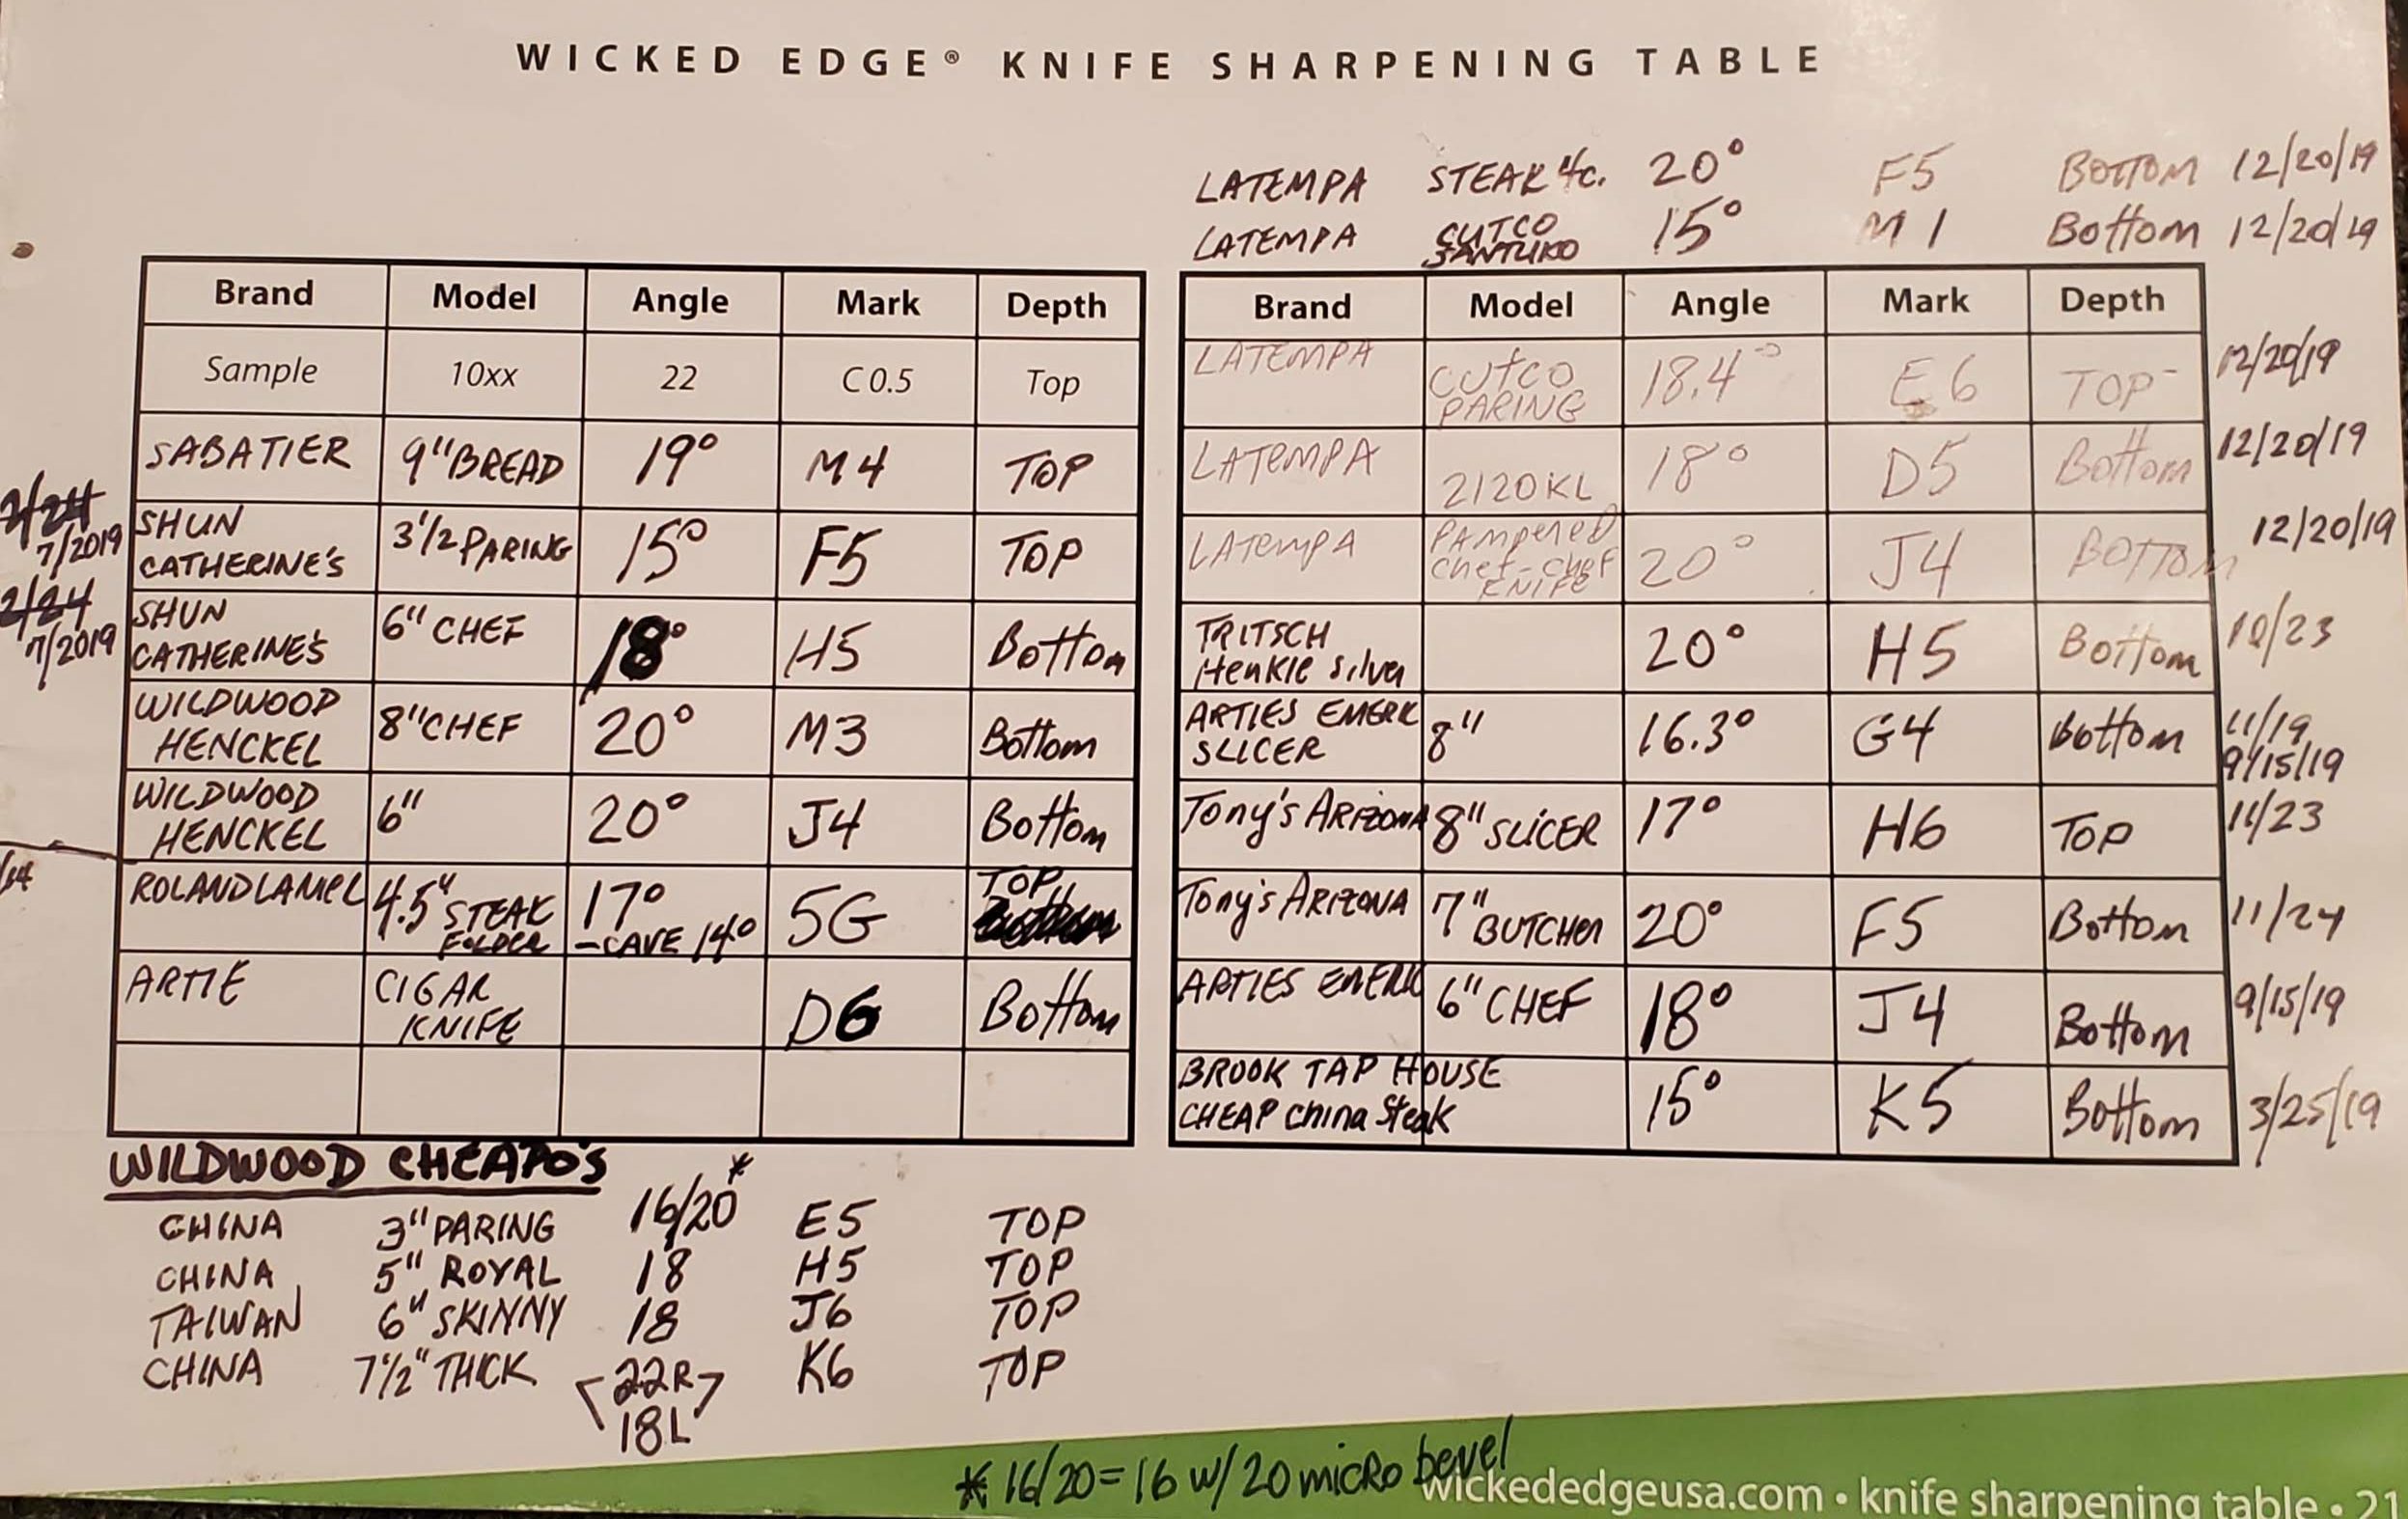 WICKED EDGE® KNIFE SHARPENING TABLE
LATEMPA STEAK 4c. 20° F5 BOTTOM 12/20/19
LATEMPA CUTCO SANTUKO 15° M1 Bottom 12/20/19
Brand Model Angle Mark Depth
Sample 10xx 22 C 0.5 Top
SABATIER 9" BREAD 19° M4 TOP
2/24 7/2019 SHUN CATHERINE'S 3 1/2 PARING 15° F5 TOP
2/24 7/2019 SHUN CATHERINE'S 6" CHEF 18° H5 Bottom
WILDWOOD HENCKEL 8" CHEF 20° M3 Bottom
WILDWOOD HENCKEL 6" 20° J4 Bottom
ROLAND LAMEL 4.5" STEAK FOLDER 17° -CAVE 14° 5G TOP Bottom
ARTIE CIGAR KNIFE D6 Bottom
Brand Model Angle Mark Depth
LATEMPA CUTCO PARING 18.4° E6 TOP 12/20/19
LATEMPA 2120KL 18° D5 Bottom 12/20/19
LATEMPA PAMPERED Chef-Chef KNIFE 20° J4 BOTTOM 12/20/19
TRITSCH Henkle Silver 20° H5 Bottom 10/23
ARTIES EMERIL SLICER 8" 16.3° G4 Bottom 11/19 9/15/19
Tony's ARIZONA 8" SLICER 17° H6 TOP 11/23
Tony's ARIZONA 7" BUTCHER 20° F5 Bottom 11/24
ARTIES EMERIL 6" CHEF 18° J4 Bottom 9/15/19
BROOK TAP HOUSE CHEAP China Steak 15° K5 Bottom 3/25/19
WILDWOOD CHEAPO'S
CHINA 3" PARING 16/20* E5 TOP
CHINA 5" ROYAL 18 H5 TOP
TAIWAN 6" SKINNY 18 J6 TOP
CHINA 7 1/2" THICK 22R K6 TOP
18L
* 16/20 = 16 w/ 20 micro bevel
wickededgeusa.com • knife sharpening table • 21